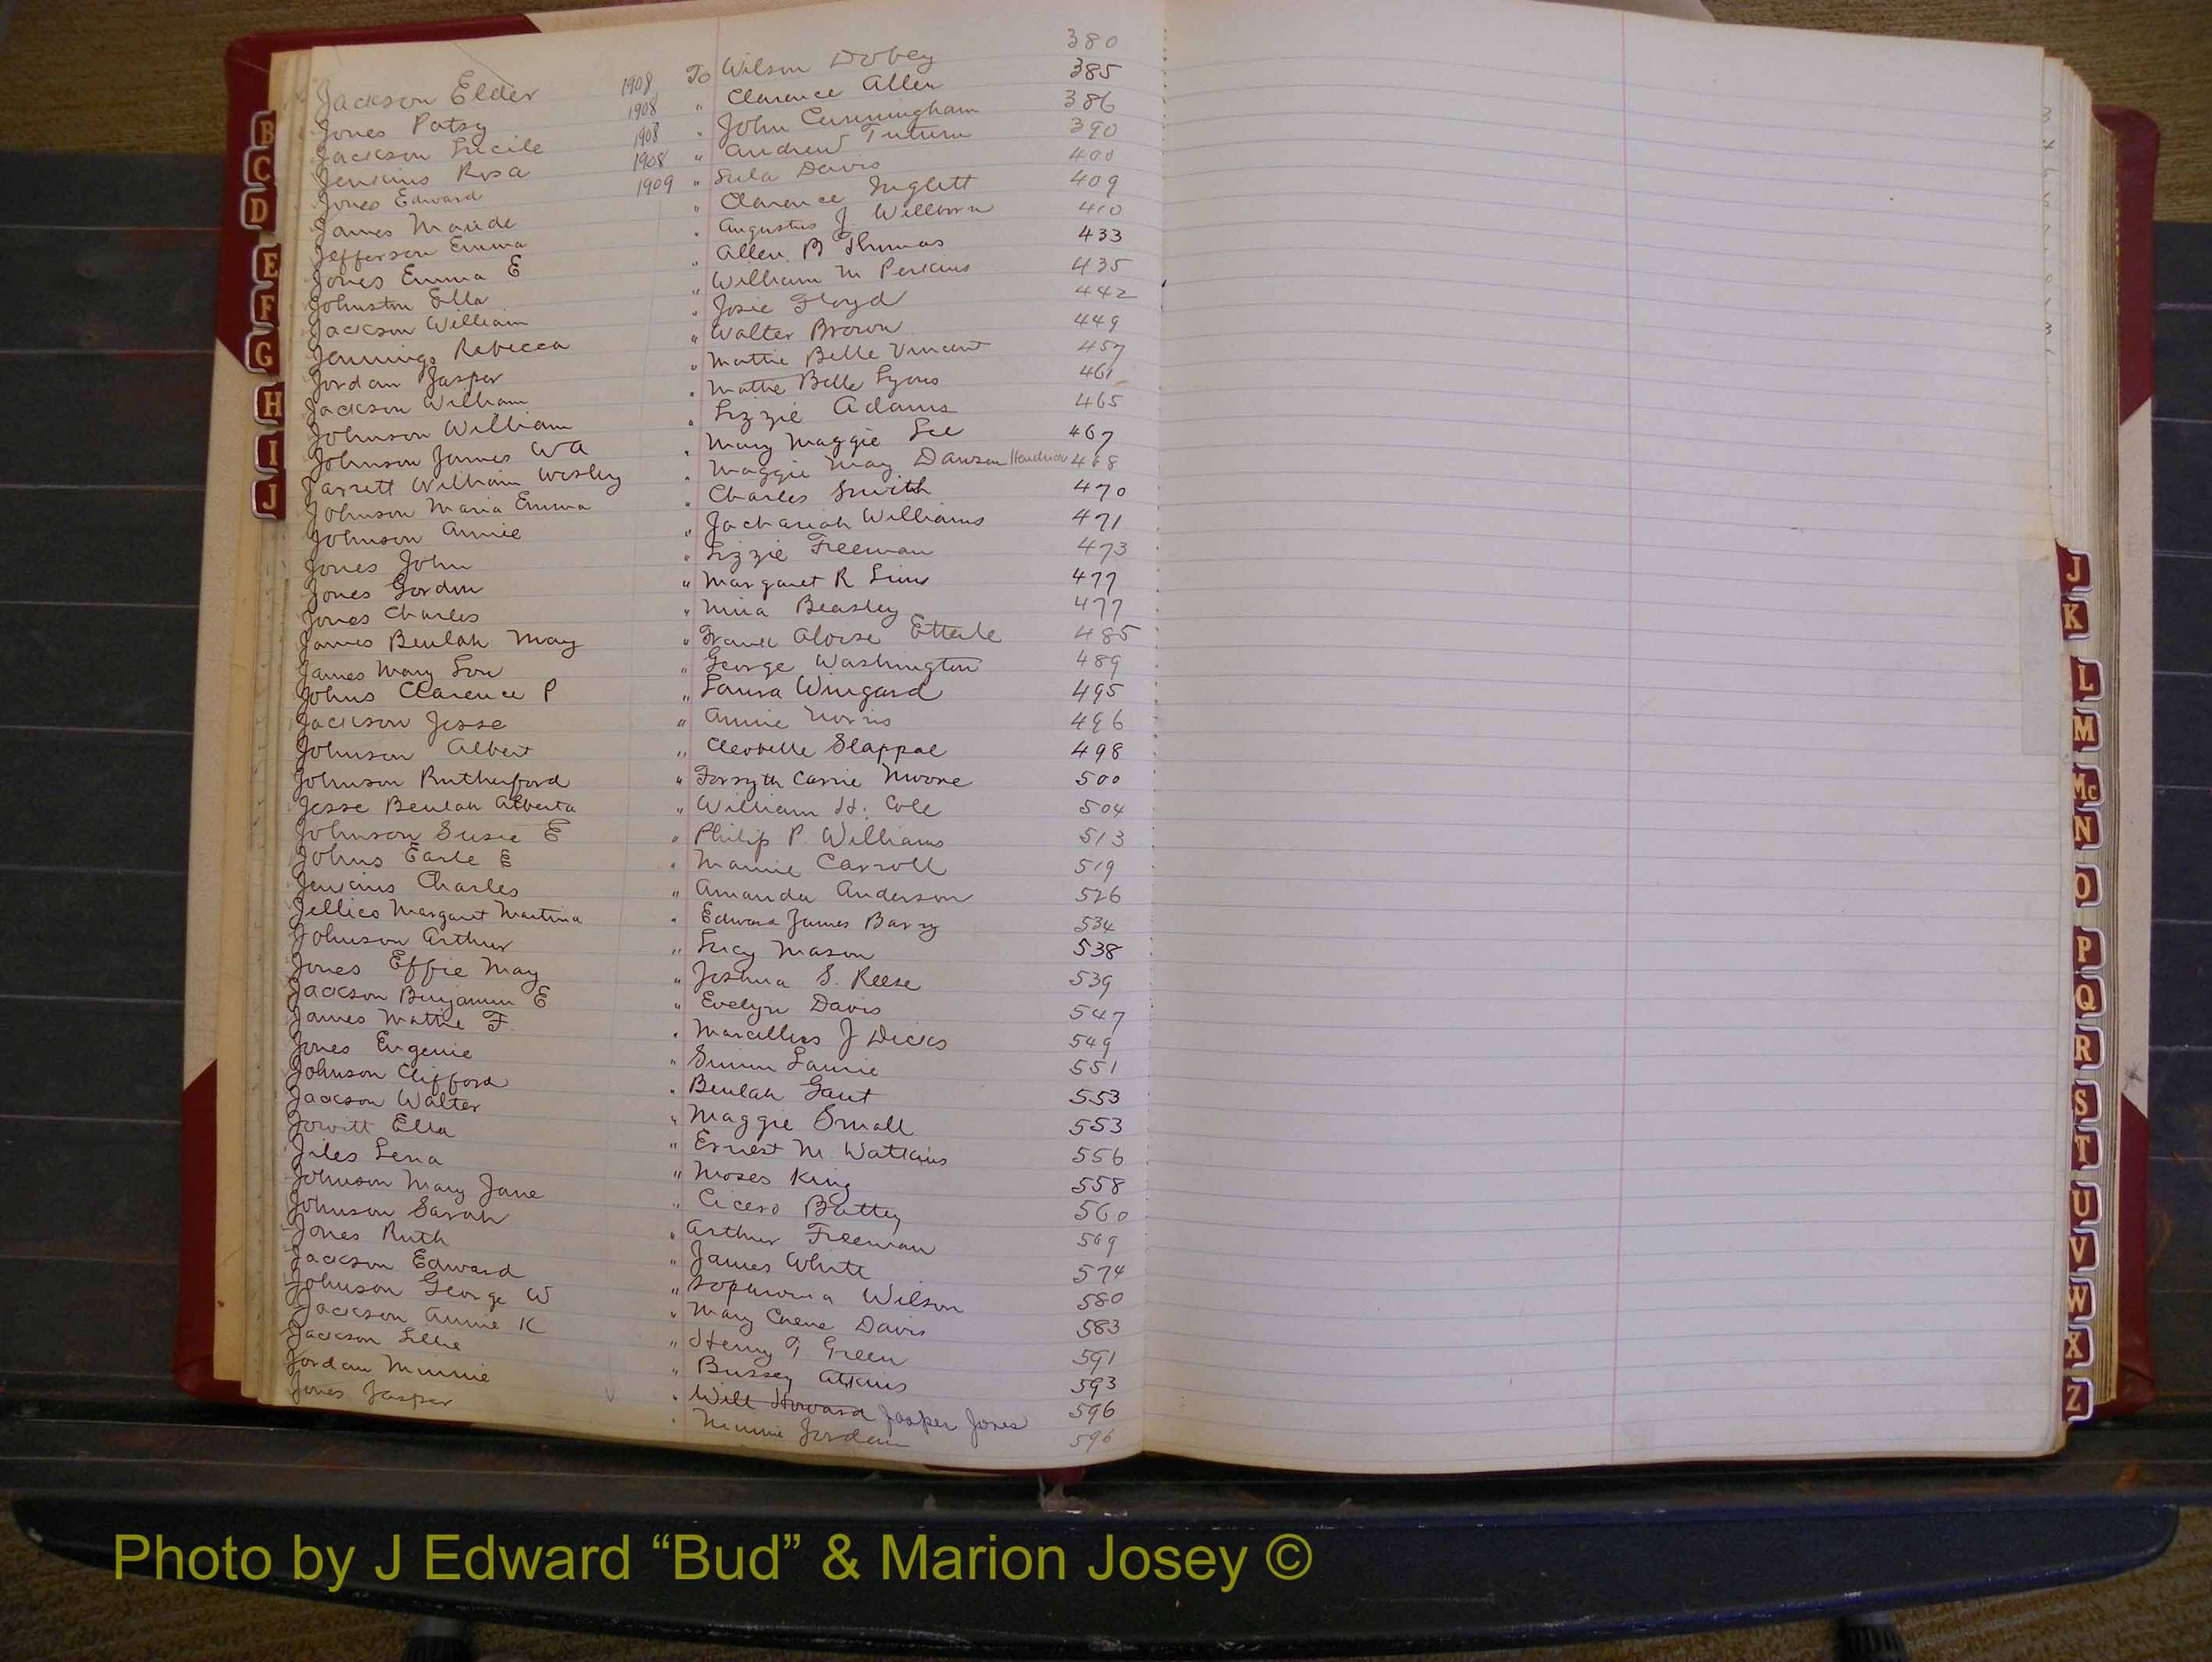 Jackson Elder 1908 To Wilson Dobey 380
Jones Patsy 1908 " Clarence Allen 385
Jackson Lucile 1908 " John Cunningham 386
Jenkins Rosa 1908 " Andrew 390
Jones Edward 1909 " Sula Davis 400
James Maude " Clarence Inglett 409
Jefferson Emma " Augustus J Willborn 410
Jones Emma E " Allen B Thomas 433
Johnston Ella " William M Perkins 435
Jackson William " Josie Floyd 442
Jennings Rebecca " Walter Brown 449
Jordan Jasper " Mattie Belle Vincent 457
Jackson William " Mattie Belle Lyons 461
Johnson William " Lizzie Adams 465
Johnson James WA " Mary Maggie Lee 467
Jarrett William Wesley " Maggie May Dawson Hendrick 468
Johnson Maria Emma " Charles Smith 470
Johnson Annie " Zachariah Williams 471
Jones John " Lizzie Freeman 473
Jones Gordon " Margaret R Sims 477
Jones Charles " Nina Beasley 477
James Beulah May " Frank Aloise 485
James Mary Lou " George Washington 489
Johns Clarence P " Laura Wingard 495
Jackson Jesse " Annie Norris 496
Johnson Albert " Cleobelle Slappae 498
Johnson Rutherford " Forsyth Carrie Moore 500
Jesse Beulah Alberta " William H. Cole 504
Johnson Susie E " Philip P. Williams 513
Johns Earle E " Mamie Carroll 519
Jenkins Charles " Amanda Anderson 526
Jellico Margaret Martina " Edward James Barry 534
Johnson Arthur " Lucy Mason 538
Jones Effie May " Joshua S. Reese 539
Jackson Benjamin E " Evelyn Davis 547
James Mattie F. " Marcellus J Dicks 549
Jones Eugenie " Laurie 551
Johnson Clifford " Beulah Gant 553
Jackson Walter " Maggie Small 553
Jowitt Ella " Ernest M. Watkins 556
Jiles Lena " Moses King 558
Johnson Mary Jane " Cicero Battey 560
Johnson Sarah " Arthur Freeman 569
Jones Ruth " James White 574
Jackson Edward " Wilson 580
Johnson George W " Mary Davis 583
Jackson Annie K " Henry G Green 591
Jackson Lillie " Bussey Atkins 593
Jordan Minnie " Will Howard Jasper Jones 596
Jones Jasper " Minnie Jordan 596
B
C
D
E
F
G
H
I
J
J
K
L
M
Mc
N
O
P
Q
R
S
T
U
V
W
X
Z
Photo by J Edward “Bud” & Marion Josey ©